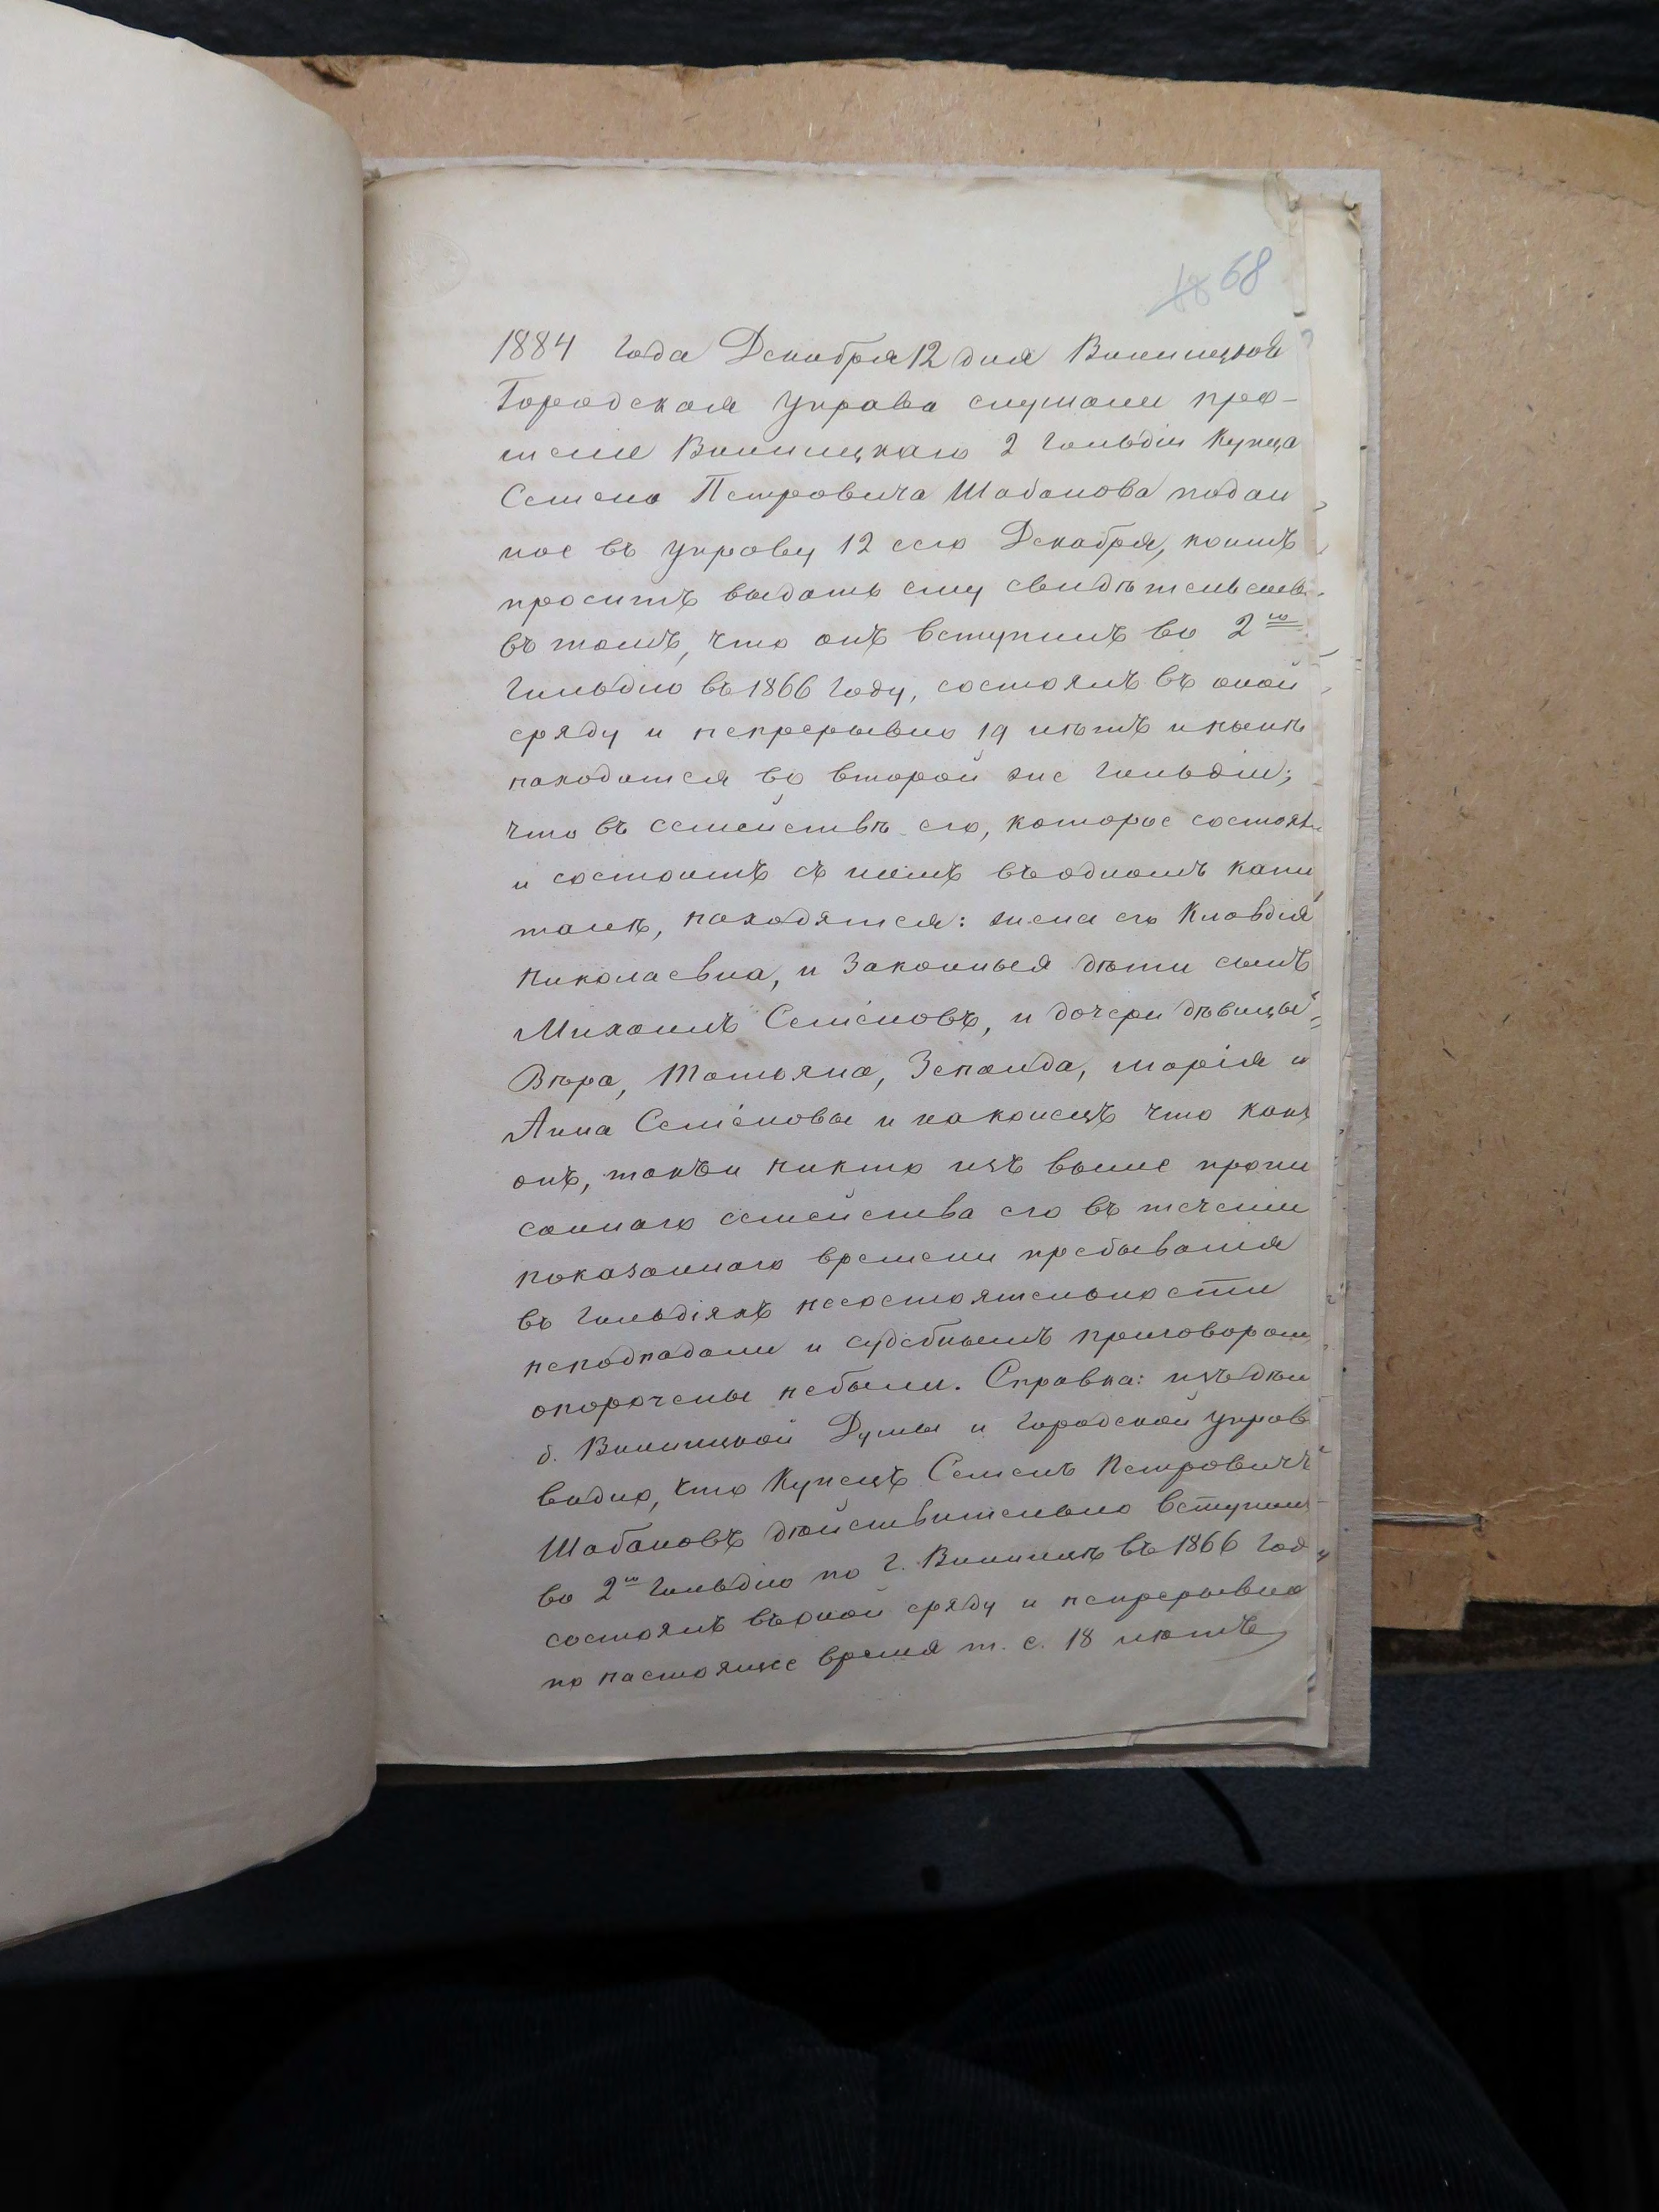 68
1884 года Декабря 12 дня Винницкая
Городская Управа слушали про-
шеніе Винницкаго 2 Гильдіи Купца
Семена Петровича Шабанова подан
ное въ Управу 12 сего Декабря, коимъ
проситъ выдать ему свидѣтельство
въ томъ, что онъ вступилъ во 2ю
Гильдію въ 1866 году, состоялъ въ оной
сряду и непрерывно 19 лѣтъ и нынѣ
находится во второй же Гильдіи;
что въ семействѣ его, которое состоял
и состоитъ съ нимъ въ одномъ капи
талѣ, находятся: жена его Клавдія
Николаевна, и Законныя дѣти сынъ
Михаилъ Семёновъ, и дочери дѣвицы
Вѣра, Татьяна, Зенаида, Марія и
Анна Семёновы и наконецъ что какъ
онъ, такъ и никто изъ выше пропи
саннаго семейства его въ теченіи
показаннаго времени пребыванія
въ Гильдіяхъ несостоятельности
неподпадали и судебнымъ приговором
опорочены небыли. Справка: изъ дѣл
б. Винницкой Думы и Городской Управ
видно, что Купецъ Семенъ Петровичъ
Шабановъ дѣйствительно вступил
во 2ю Гильдію по г. Винницѣ въ 1866 год
состоялъ въ оной сряду и непрерывно
по настоящее время т. е. 18 лѣтъ